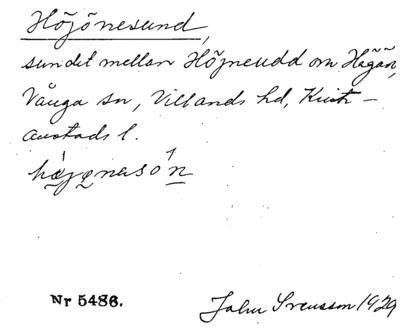 Höjönesund,
sundet mellan Höjneudd om Hägån,
Vånga sn, Villands hd, Kristi-
anstads l.
hæjǫnasón
Nr 5486.
John Svensson 1929